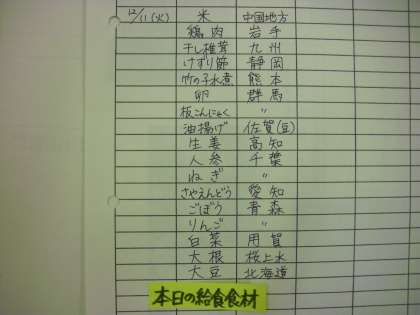 12/11(火) 米 中国地方
鶏肉 岩手
干し椎茸 九州
けずり節 静岡
竹の子水煮 熊本
卵 群馬
板こんにゃく 〃
油揚げ 佐賀(豆)
生姜 高知
人参 千葉
ねぎ 〃
さやえんどう 愛知
ごぼう 青森
りんご 〃
白菜 用賀
大根 桜上水
大豆 北海道
本日の給食食材